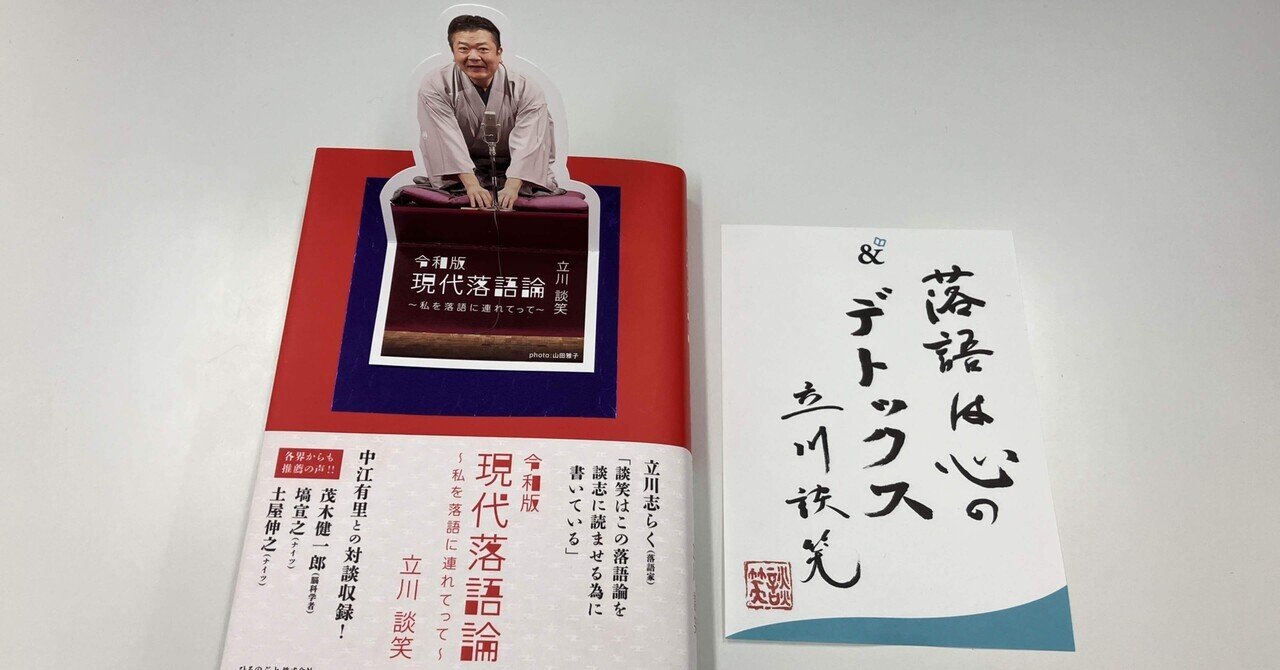 令和版
現代落語論
～私を落語に連れてって～
立川 談笑
photo:山田雅子
立川志らく(落語家)
「談笑はこの落語論を
談志に読ませる為に
書いている」
令和版
現代落語論
～私を落語に連れてって～
立川 談笑
各界からも
推薦の声!!
中江有里との対談収録!
茂木健一郎(脳科学者)
塙宣之(ナイツ)
土屋伸之(ナイツ)
&
落語は心の
デトックス
立川談笑
談笑